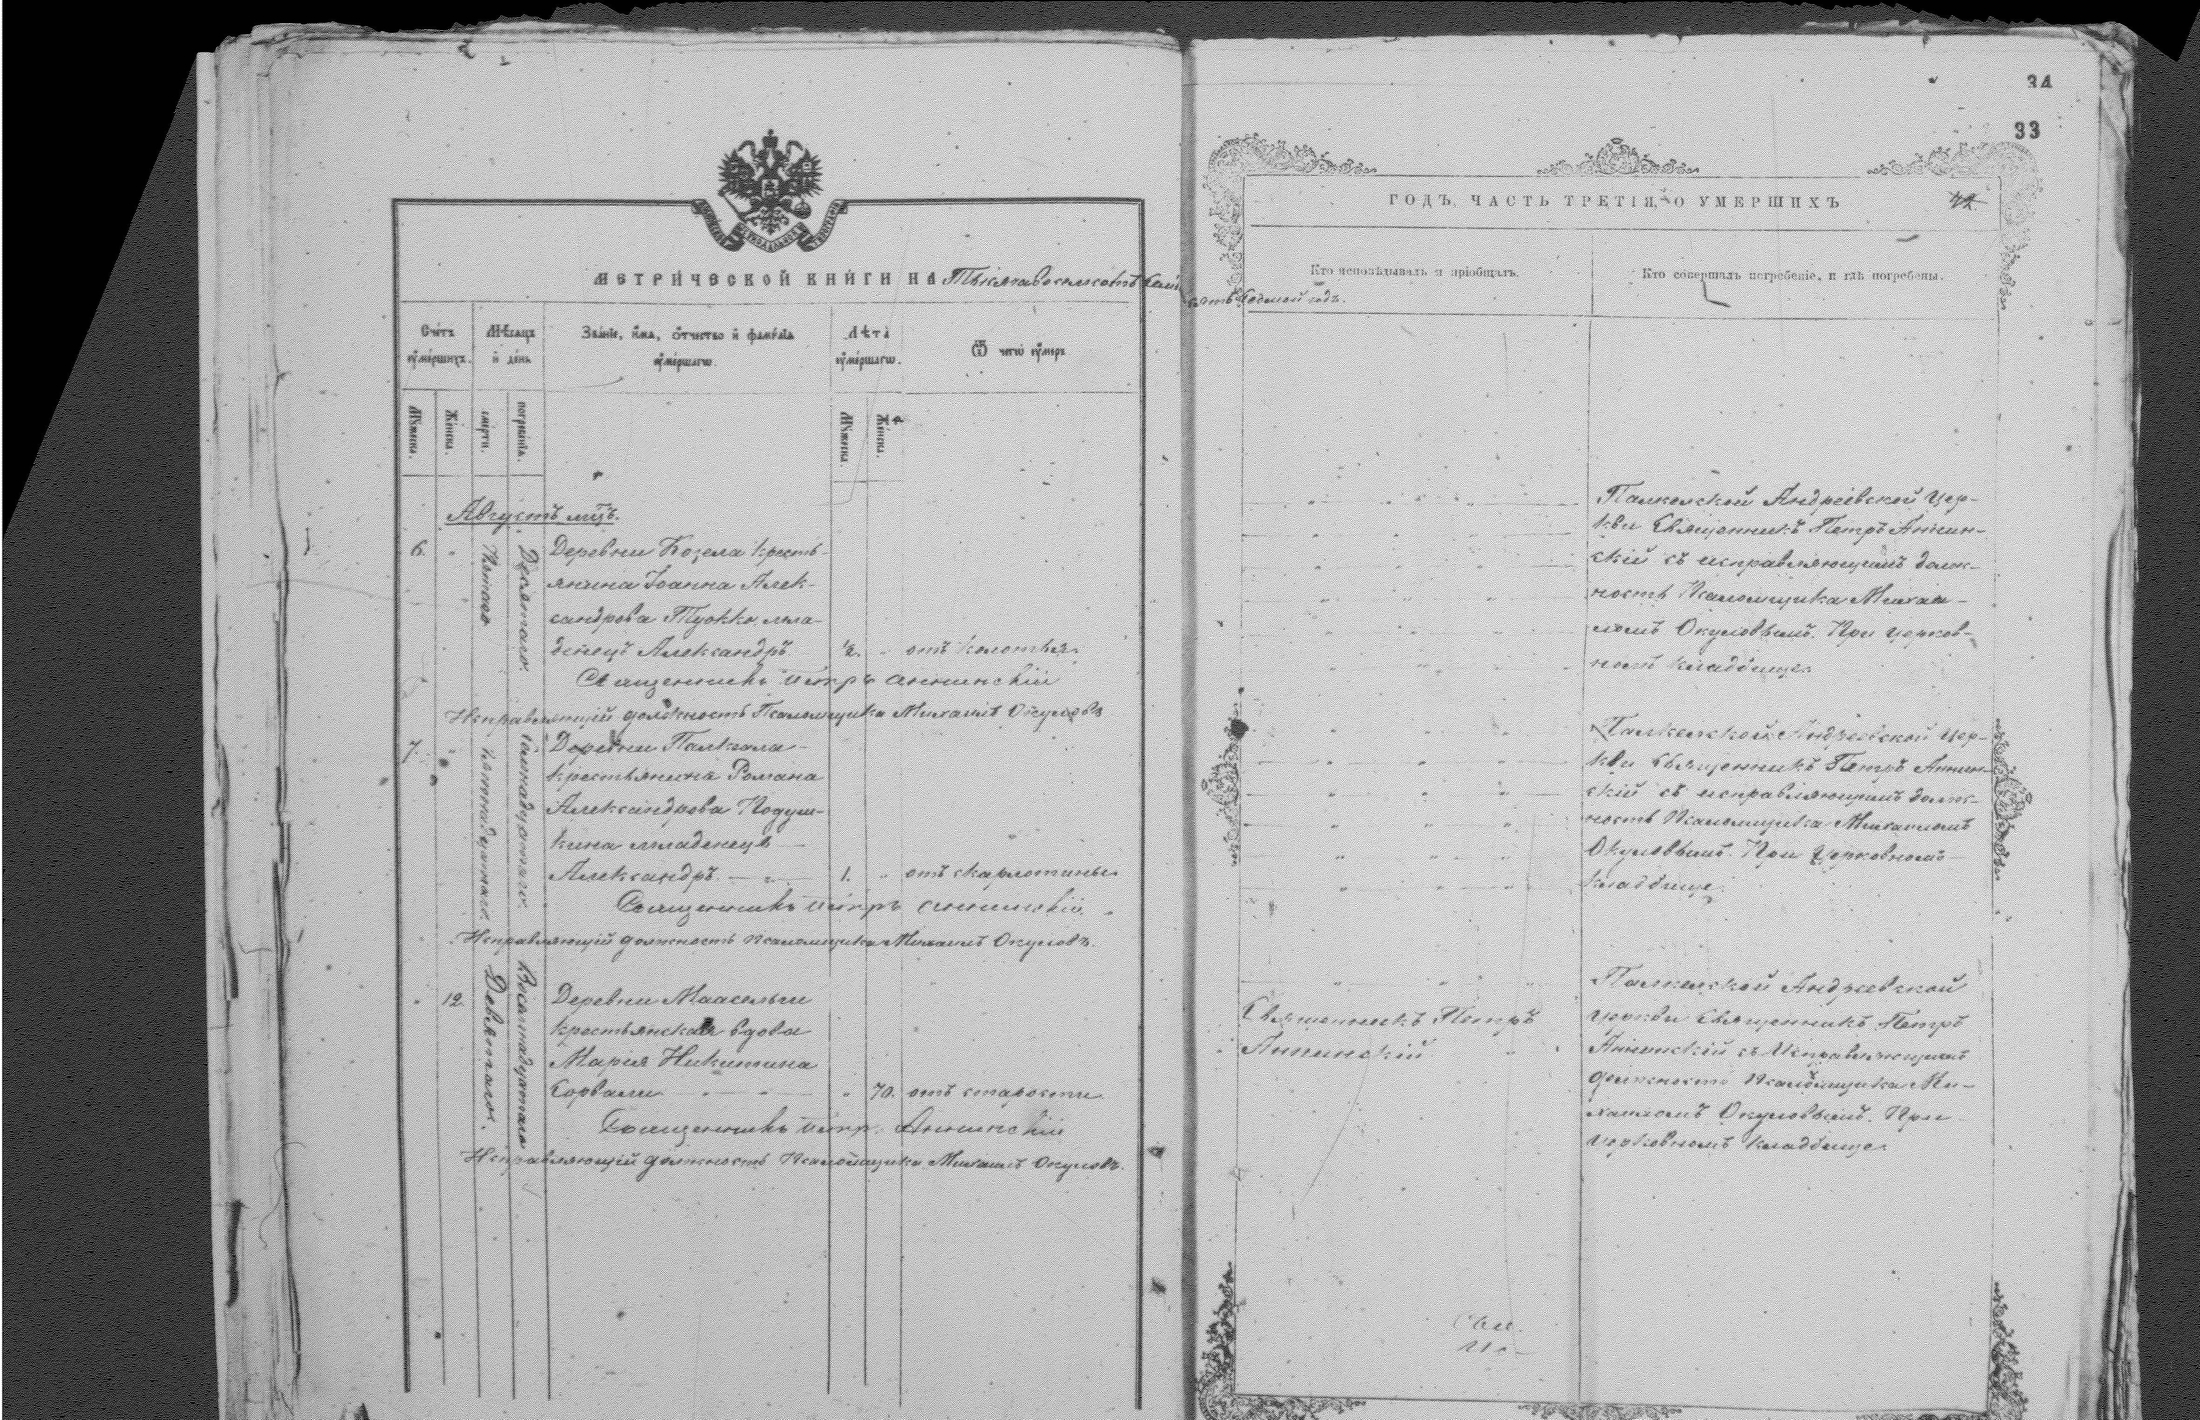 34
33
МЕТРИЧЕСКОЙ КНИГИ НА Тысяча восемьсотъ
ГОДЪ, ЧАСТЬ ТРЕТІЯ, О УМЕРШИХЪ
42
седьмой годъ.
Счетъ умершихъ.
Мѣсяцъ и день
Званіе, имя, отчество и фамилія умершаго.
Лѣта умершаго.
Ѿ чего умеръ
Кто исповѣдывалъ и пріобщалъ.
Кто совершалъ погребеніе, и гдѣ погребены.
Мужеска.
Женска.
смерти.
погребенія.
Мужеска.
Женска.
Августъ мцъ.
6.
Десятаго.
Деревни Козела кресть-
янина Іоанна Алек-
сандрова Туокко мла-
денецъ Александръ ½. отъ колотья.
Священникъ Петръ Аннинскій
Исправляющій должность Псаломщика Михаилъ Окуловъ
Палкельской Андреевской Цер-
кви Священникъ Петръ Аннин-
скій съ исправляющимъ долж-
ность Псаломщика Михаи-
ломъ Окуловымъ. При церков-
номъ кладбище.
7.
Деревни Палкела
крестьянина Романа
Александрова Подуш-
кина младенецъ
Александръ 1. отъ скарлотины
Священникъ Петръ Аннинскій
Исправляющій должность псаломщика Михаилъ Окуловъ.
Палкельской Андреевской Цер-
кви Священникъ Петръ Аннин-
скій съ исправляющимъ долж-
ность Псаломщика Михаиломъ
Окуловымъ. При Церковномъ
кладбище.
12.
Девятаго.
Восемнадцатаго
Деревни Маасельги
крестьянская вдова
Мария Никитина
Сорвали 70. отъ старости
Священникъ Петръ Аннинскій
Исправляющій должность Псаломщика Михаилъ Окуловъ.
Священникъ Петръ
Аннинскій
Палкельской Андреевской
Церкви Священникъ Петръ
Аннинскій съ Исправляющимъ
должность Псаломщика Ми-
хаиломъ Окуловымъ. При
церковномъ кладбище.